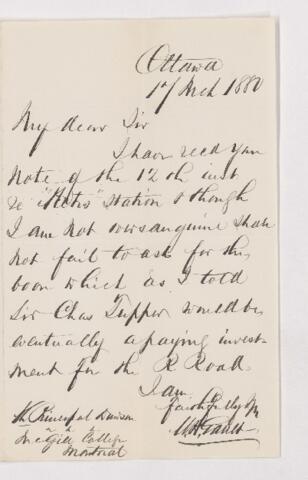 Ottawa
17 Mch 1880
My dear Sir
I have recd your
note of the 12th inst
re "Metis" station & though
I am not oversanguine shall
not fail to ask for the
boon which as I told
Sir Chas Tupper would be
eventually a paying invest-
ment for the R Road
I am
faithfully yrs
M H Gault
Principal Dawson
McGill College
Montreal